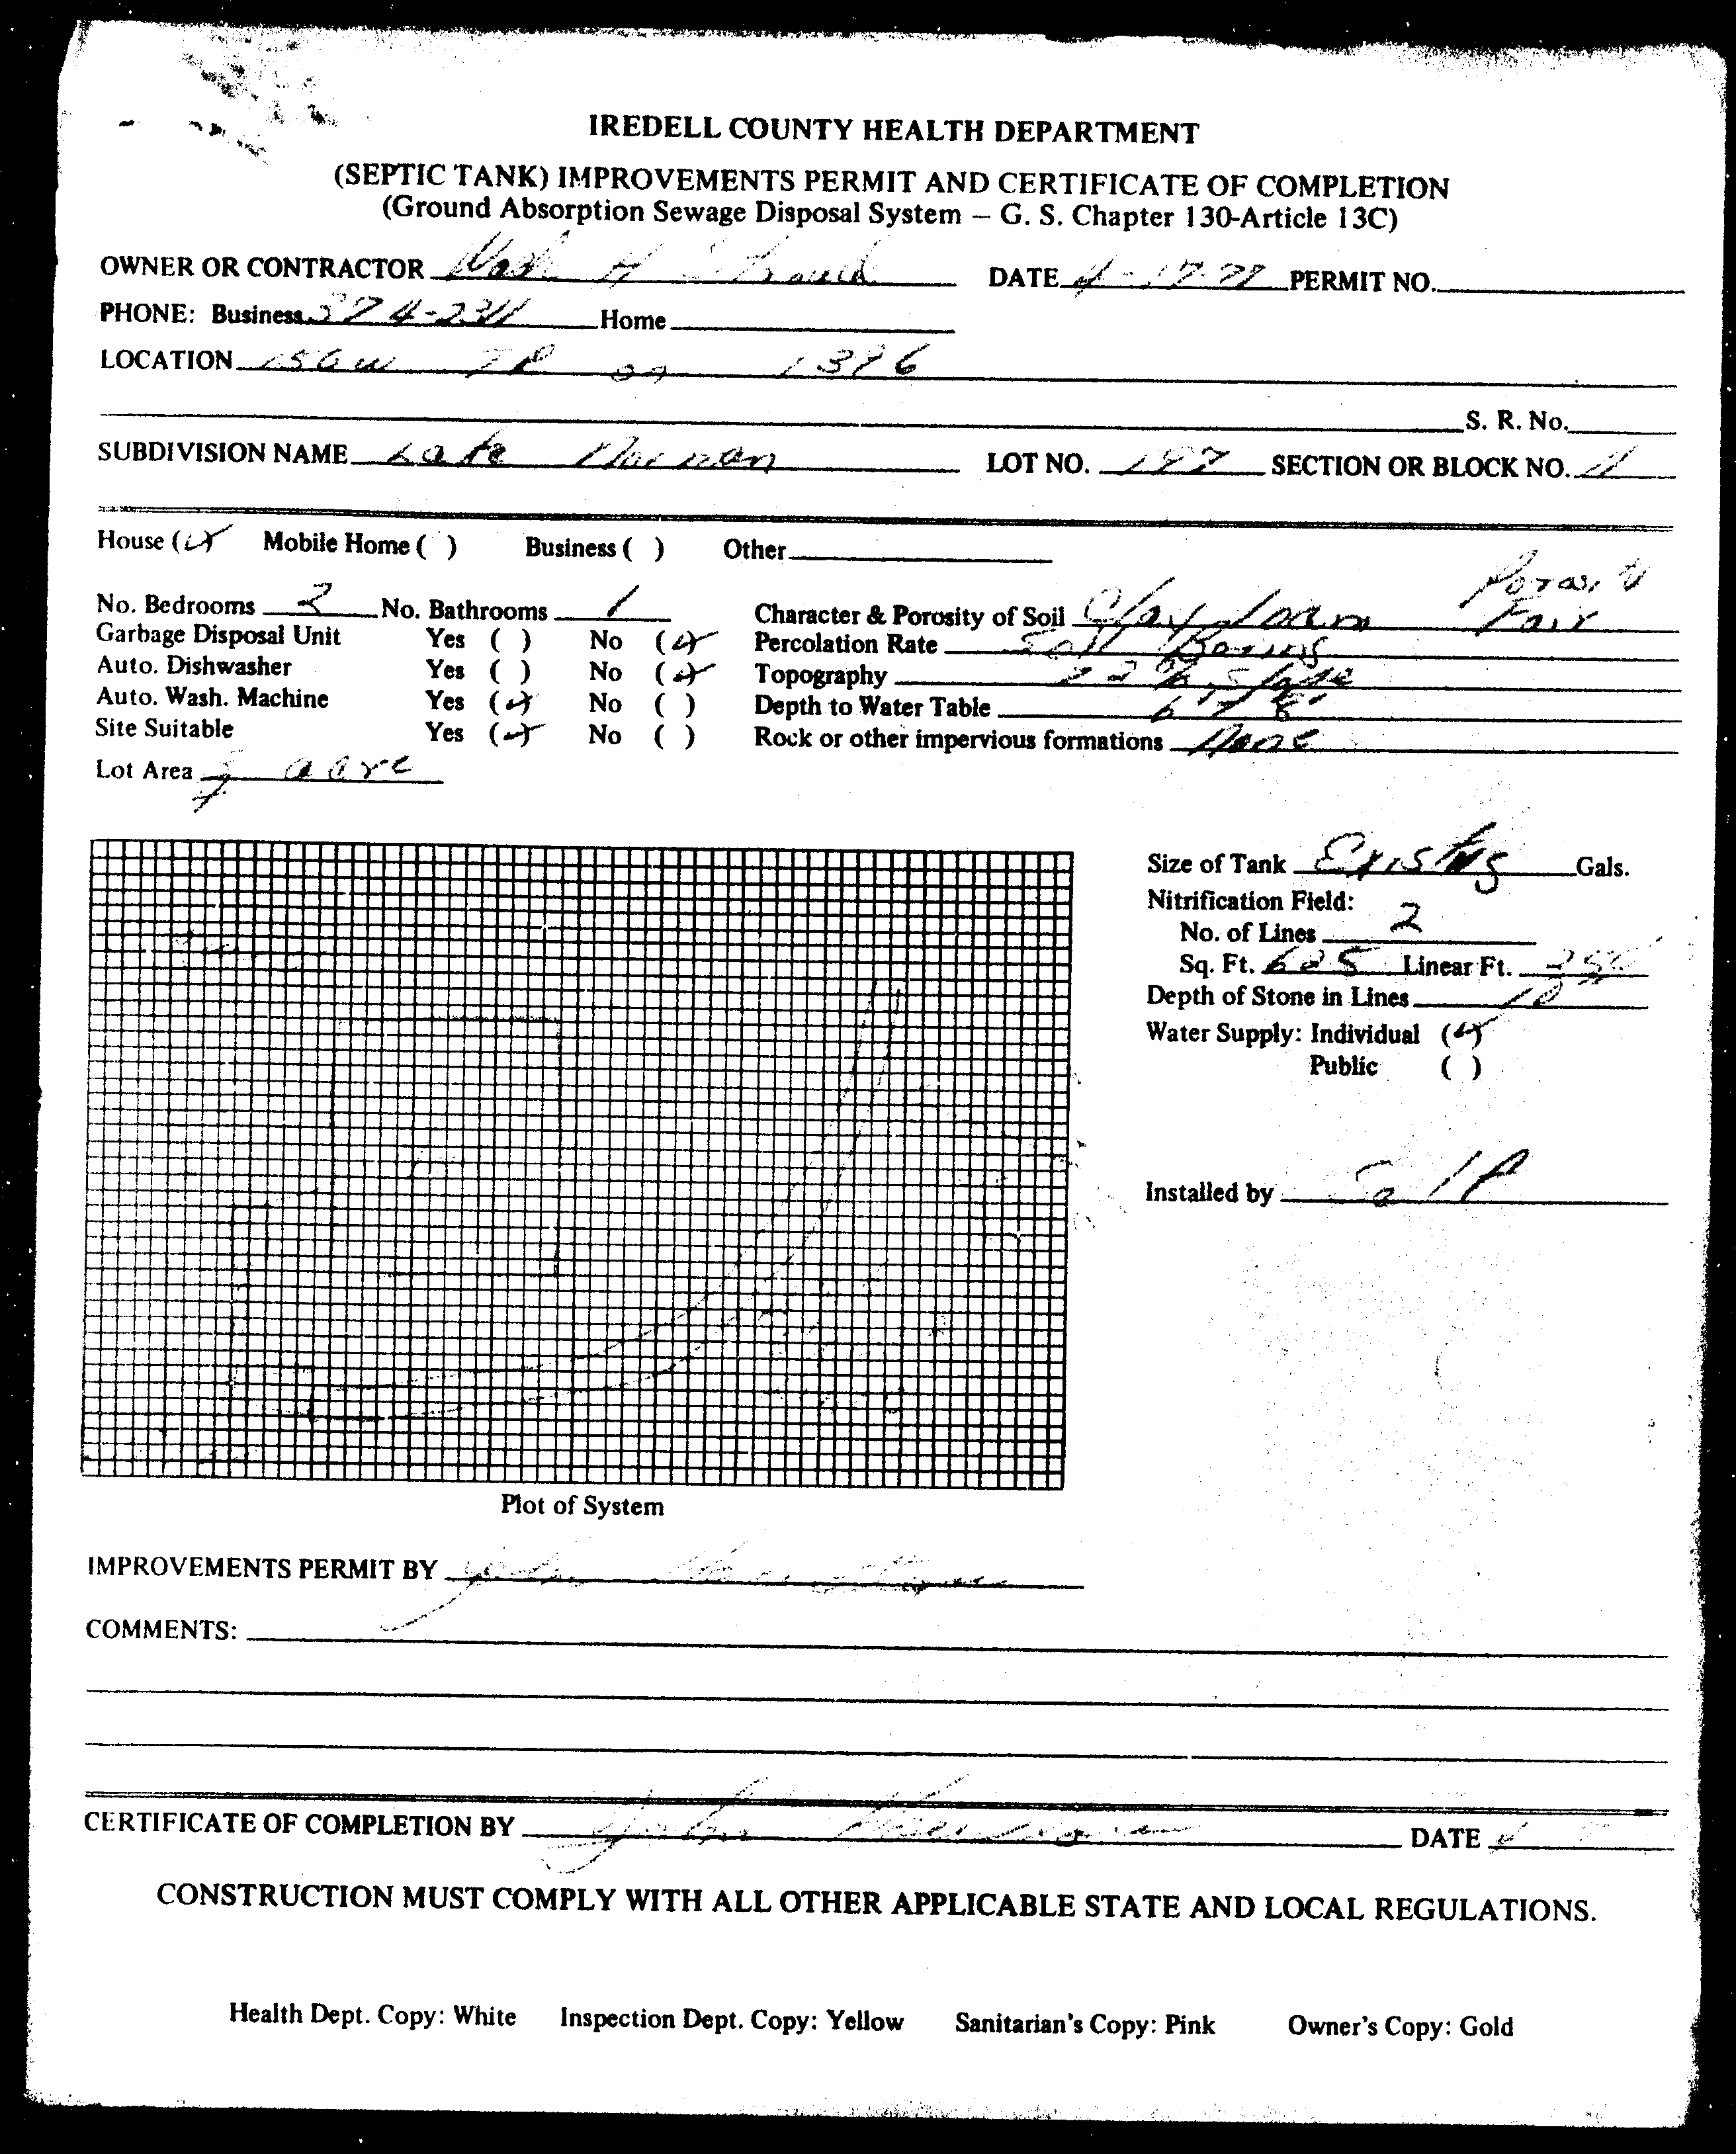 IREDELL COUNTY HEALTH DEPARTMENT
(SEPTIC TANK) IMPROVEMENTS PERMIT AND CERTIFICATE OF COMPLETION
(Ground Absorption Sewage Disposal System – G. S. Chapter 130-Article 13C)
OWNER OR CONTRACTOR H DATE PERMIT NO.
PHONE: Business 374-2311 Home
LOCATION on 1396
S. R. No.
SUBDIVISION NAME Lake Norman LOT NO. 197 SECTION OR BLOCK NO. 11
House ( ) Mobile Home ( ) Business ( ) Other
Porosity
No. Bedrooms No. Bathrooms 1 Character & Porosity of Soil Clay loam Fair
Garbage Disposal Unit Yes ( ) No ( ) Percolation Rate Soil Boring
Auto. Dishwasher Yes ( ) No ( ) Topography Slope
Auto. Wash. Machine Yes ( ) No ( ) Depth to Water Table
Site Suitable Yes ( ) No ( ) Rock or other impervious formations None
Lot Area acre
Size of Tank Existing Gals.
Nitrification Field:
No. of Lines 2
Sq. Ft. 625 Linear Ft.
Depth of Stone in Lines 10
Water Supply: Individual ( )
Public ( )
Installed by Self
Plot of System
IMPROVEMENTS PERMIT BY John
COMMENTS:
CERTIFICATE OF COMPLETION BY John DATE
CONSTRUCTION MUST COMPLY WITH ALL OTHER APPLICABLE STATE AND LOCAL REGULATIONS.
Health Dept. Copy: White Inspection Dept. Copy: Yellow Sanitarian's Copy: Pink Owner's Copy: Gold